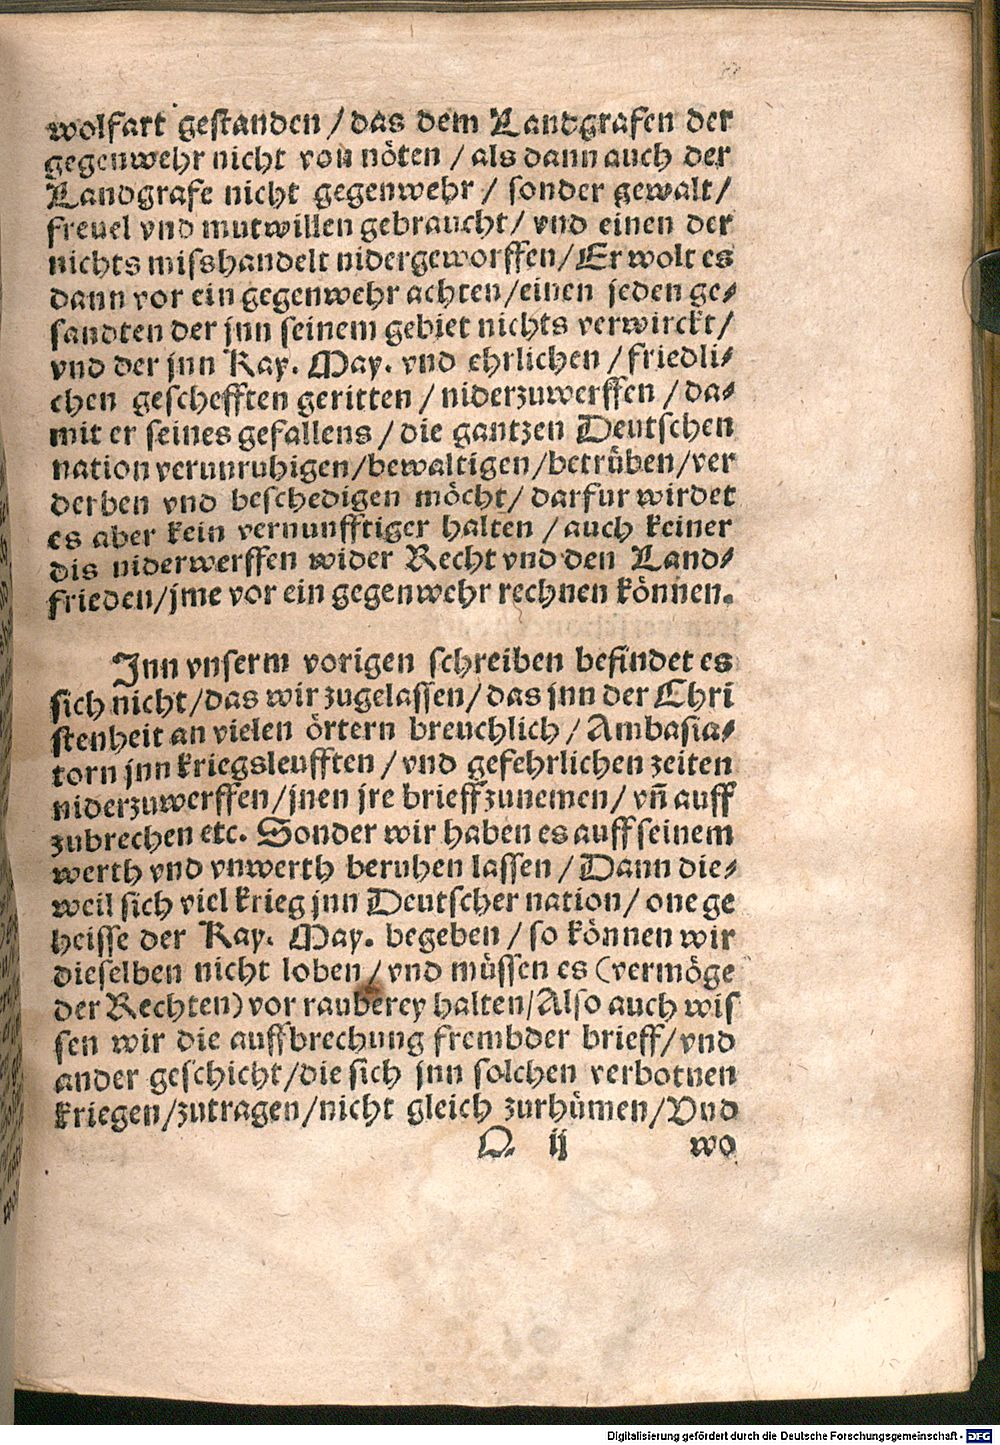 wolfart gestanden / das dem Landgrafen der
gegenwehr nicht von nöten / als dann auch der
Landgrafe nicht gegenwehr / sonder gewalt /
freuel vnd mutwillen gebraucht / vnd einen der
nichts misshandelt nidergeworffen / Er wolt es
dann vor ein gegenwehr achten / einen jeden ge⸗
sandten der jnn seinem gebiet nichts verwirckt /
vnd der jnn Kay. May. vnd ehrlichen / friedli⸗
chen geschefften geritten / niderzuwerffen / da⸗
mit er seines gefallens / die gantzen Deutschen
nation verunruhigen / bewaltigen / betrüben / ver
derben vnd beschedigen möcht / darfur wirdet
es aber kein vernunfftiger halten / auch keiner
dis niderwerffen wider Recht vnd den Land⸗
frieden / jme vor ein gegenwehr rechnen können.
Jnn vnserm vorigen schreiben befindet es
sich nicht / das wir zugelassen / das jnn der Chri
stenheit an vielen örtern breuchlich / Ambasia⸗
torn jnn kriegsleufften / vnd gefehrlichen zeiten
niderzuwerffen / jnen jre brieff zunemen / vñ auff
zubrechen etc. Sonder wir haben es auff seinem
werth vnd vnwerth beruhen lassen / Dann die⸗
weil sich viel krieg jnn Deutscher nation / one ge
heisse der Kay. May. begeben / so können wir
dieselben nicht loben / vnd müssen es (vermöge
der Rechten) vor rauberey halten / Also auch wis
sen wir die auffbrechung frembder brieff / vnd
ander geschicht / die sich jnn solchen verbotnen
kriegen / zutragen / nicht gleich zurhümen / Vnd
Q ij wo
Digitalisierung gefördert durch die Deutsche Forschungsgemeinschaft - DFG